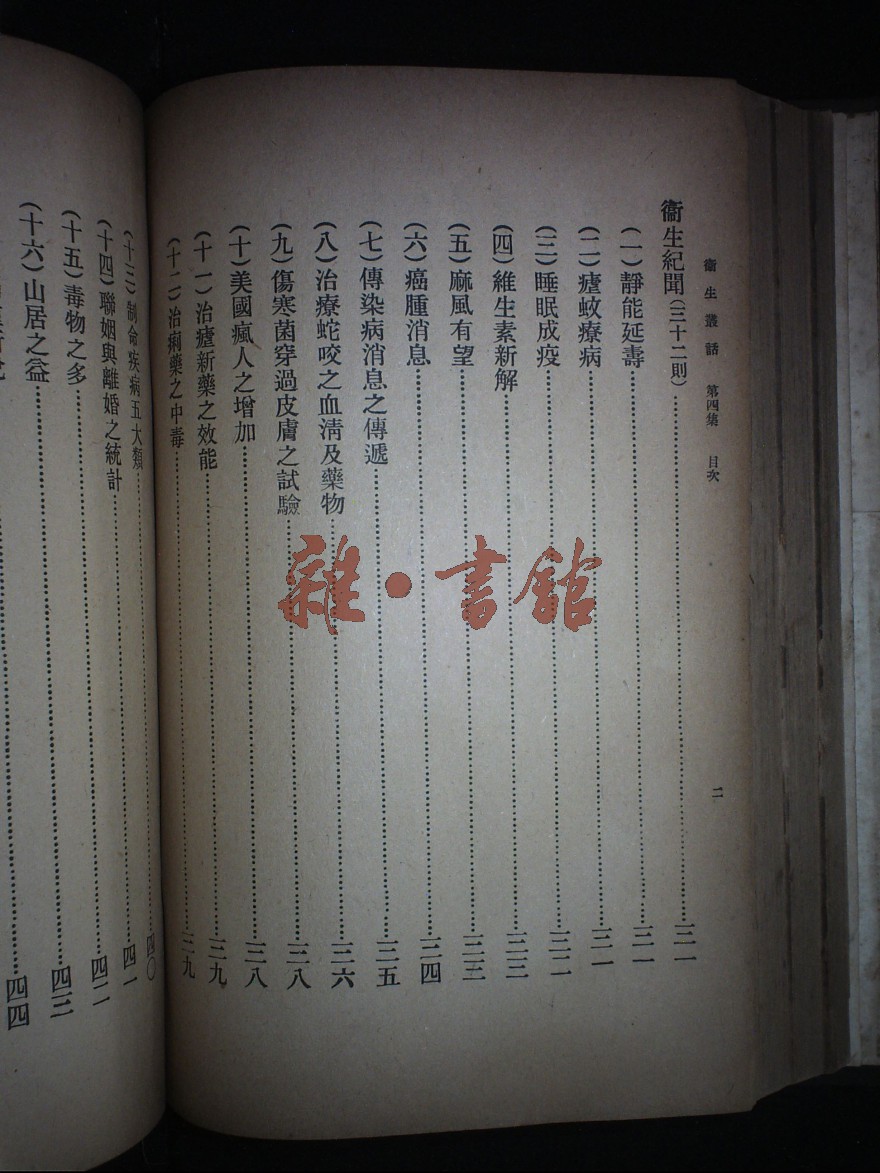 衞生叢話 第四集 目次 二
衞生紀聞(三十二則)……三一
(一)靜能延壽……三一
(二)瘧蚊療病……三一
(三)睡眠成疫……三二
(四)維生素新解……三三
(五)麻風有望……三三
(六)癌腫消息……三四
(七)傳染病消息之傳遞……三五
(八)治療蛇咬之血淸及藥物……三六
(九)傷寒菌穿過皮膚之試驗……三八
(十)美國瘋人之增加……三八
(十一)治瘧新藥之效能……三九
(十二)治痢藥之中毒……三九
(十三)制命疾病五大類……四〇
(十四)聯姻與離婚之統計……四一
(十五)毒物之多……四二
(十六)山居之益……四三
四四
雜·書館